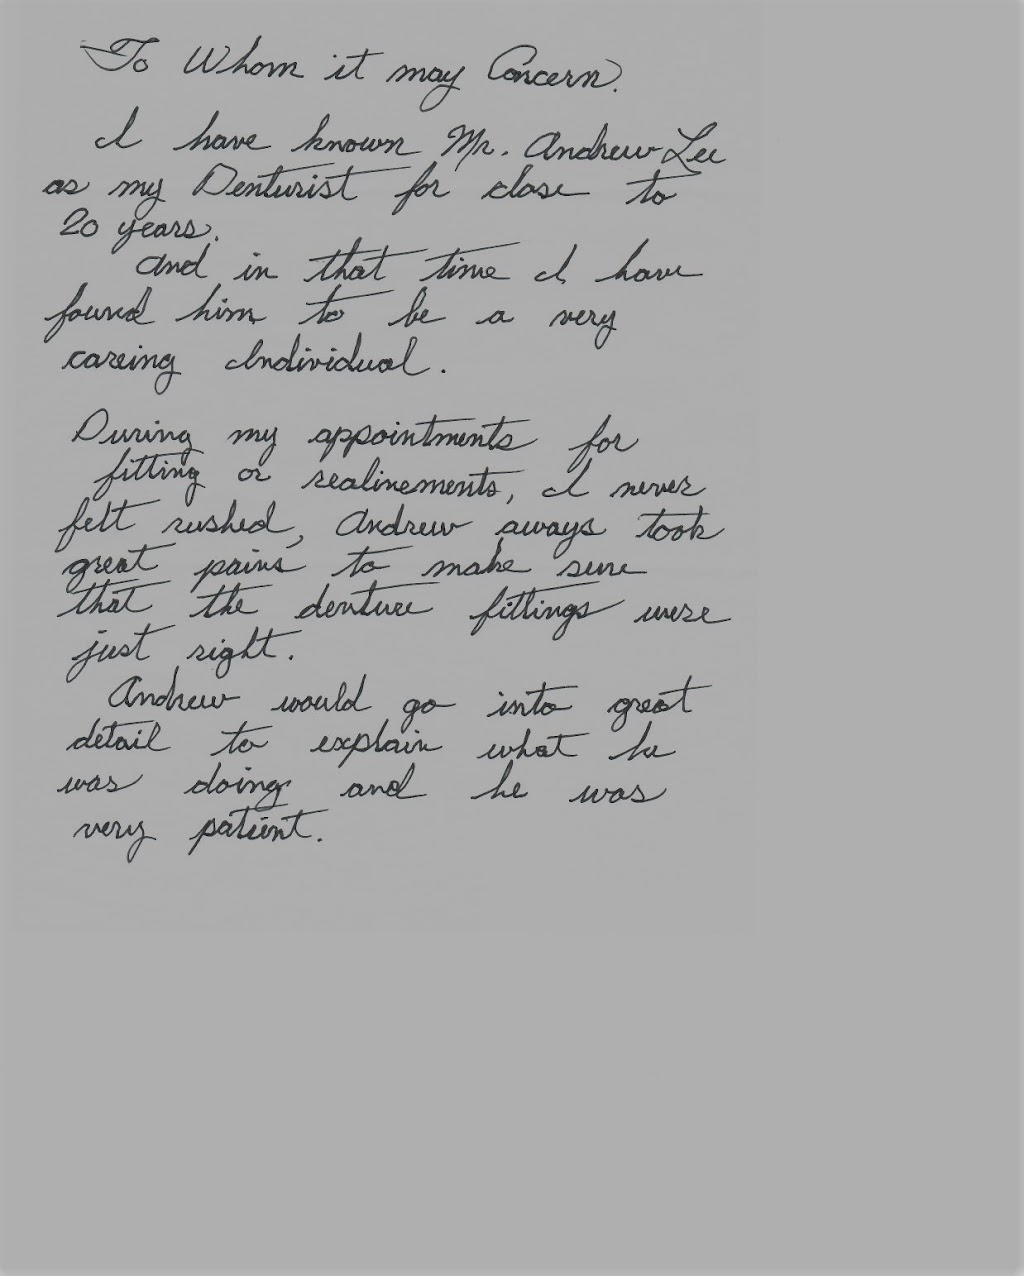 To Whom it may Concern.
I have known Mr. Andrew Lee
as my Denturist for close to
20 years.
and in that time I have
found him to be a very
careing Individual.
During my appointments for
fitting or realinements, I never
felt rushed, Andrew aways took
great pains to make sure
that the denture fittings were
just right.
Andrew would go into great
detail to explain what he
was doing and he was
very patient.